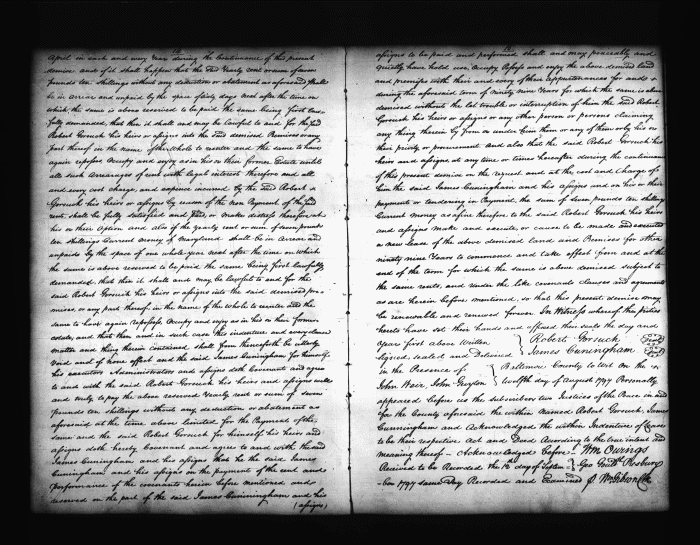 April in each and every year during the Continuance of this present
demise and if it shall happen that the said Yearly rent or sum of seven
pounds ten shillings without any deduction or abatement as aforesaid shall
be in arrear and unpaid by the space of sixty days next after the time on
which the same is above reserved to be paid the same being first law-
fully demanded, that then it shall and may be lawful to and for the said
Robert Gorsuch his heirs or assigns into the said demised Premises or any
part thereof in the name of the whole to reenter and the same to have
again repossess Occupy and enjoy as in his or their former Estate until
all such arrearages of rent with legal interest therefore and all
and every cost, charge, and expence incurred by the said Robert
Gorsuch his heirs or assigns by reason of the non Payment of the said
rent shall be fully satisfied and paid, or make distress therefore, at
his or their Option and also if the yearly rent or sum of seven pounds
ten shillings Current money of Maryland shall be in arrear and
unpaid by the space of one whole year next after the time on which
the same is above reserved to be paid the same being first lawfully
demanded, that then it shall and may be lawful to and for the
said Robert Gorsuch his heirs or assigns into the said demised pre-
mises, or any part thereof in the name of the whole to reenter and the
same to have again repossess, Occupy and enjoy as in his or their former
estate, and that then and in such case this indenture and every clause
matter and thing herein contained, shall from thenceforth be utterly
void and of none effect and the said James Cunningham for himself
his executors Administrators and assigns doth Covenant and agree
to and with the said Robert Gorsuch his heirs and assigns well
and truly to pay the above reserved Yearly rent or sum of seven
pounds ten shillings without any deduction or abatement as
aforesaid at the time above limited for the Payment of the
same and the said Robert Gorsuch for himself his heirs and
assigns doth hereby Covenant and agree to and with the said
James Cunningham and his assigns that he the said James
Cunningham and his assigns on the payment of the rent and
performance of the covenants herein before mentioned and
reserved on the part of the said James Cunningham and his
(assigns)
assigns to be paid and performed shall and may peaceably and
quietly have hold use, Occupy Possess and enjoy the above demised land
and premises with their and every of their appurtenances for and
during the aforesaid term of ninety nine Years for which the same is above
demised without the let trouble or interruption of him the said Robert
Gorsuch his heirs or assigns or any other person or persons claiming
any thing therein by from or under him them or any of them or by his or
their privity or procurement and also that the said Robert Gorsuch his
heirs and assigns at any time or times hereafter during the continuance
of this present demise on the request and at the cost and Charge of
him the said James Cuningham and his assigns and on his or their
payment or tendering in Payment, the sum of seven pounds ten shillings
Current money as a fine therefore to the said Robert Gorsuch his heirs
and assigns make and execute, or cause to be made and executed
a new lease of the above demised land and Premises for other
ninety nine Years to commence and take effect from and at the
end of the term for which the same is above demised subject to
the same rents, and under the like covenants clauses and agreements
as are herein before mentioned, so that this present demise may
be renewable and renewed forever In Witness whereof the parties
hereto have set their hands and affixed their seals the day and
Year first above Written Robert Gorsuch
signed, sealed and Delivered James Cuningham
in the Presence of Baltimore County to wit on the
John Weir, John Guyton twelfth day of August 1797 Personally
appeared before us the subscribers two Justices of the Peace in and
for the County aforesaid the within named Robert Gorsuch, James
Cunningham and Acknowledged the within Indenture of Lease
to be their respective Act and Deed According to the true intent and
meaning thereof - Acknowledged before Wm Owings
Received to be Recorded the day of Septem
ber 1797 same Day Recorded and Examined